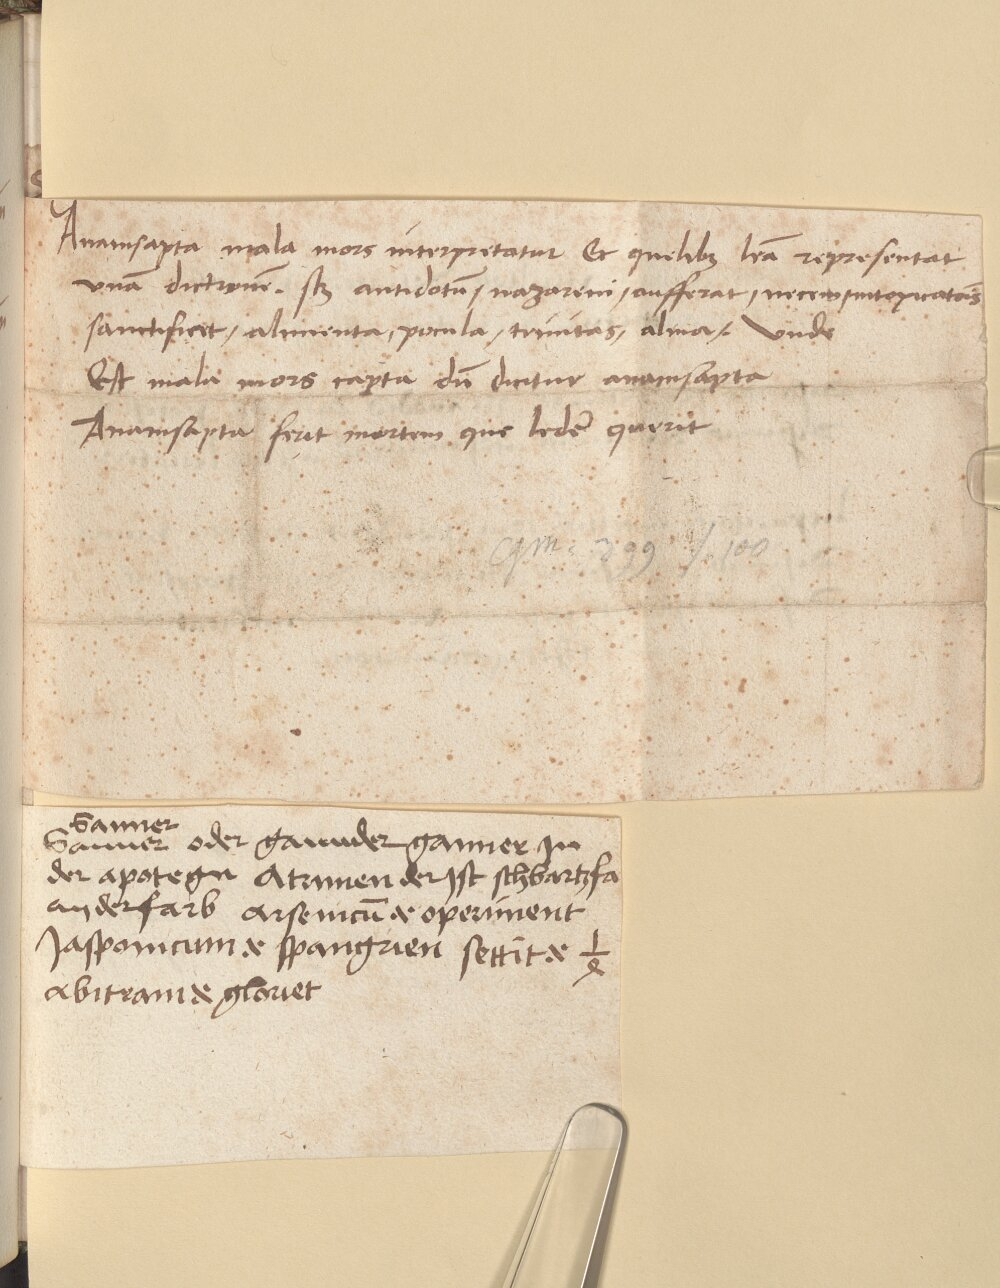 Anamsapta mala mors interpretatur Et quelibꝫ lr̄a representat
vnā dictionē. scꝫ antidotū / nazareni / aufferat / necem / intoxicatōis
sanctificet / alimenta / pocula / trinitas / alma /. Vnde
Est mala mors capta dū dicitur anamsapta
Anamsapta ferit mortem que leder̄ querit
Cgm. 399 f. 100
Ganner
Ganner oder gannder ganner In
der apotegn Atrimen der Ist schbartzfa
an der farb arsenicū & operiment
Jasponicum & spangrien settit &
abitram & gloriet